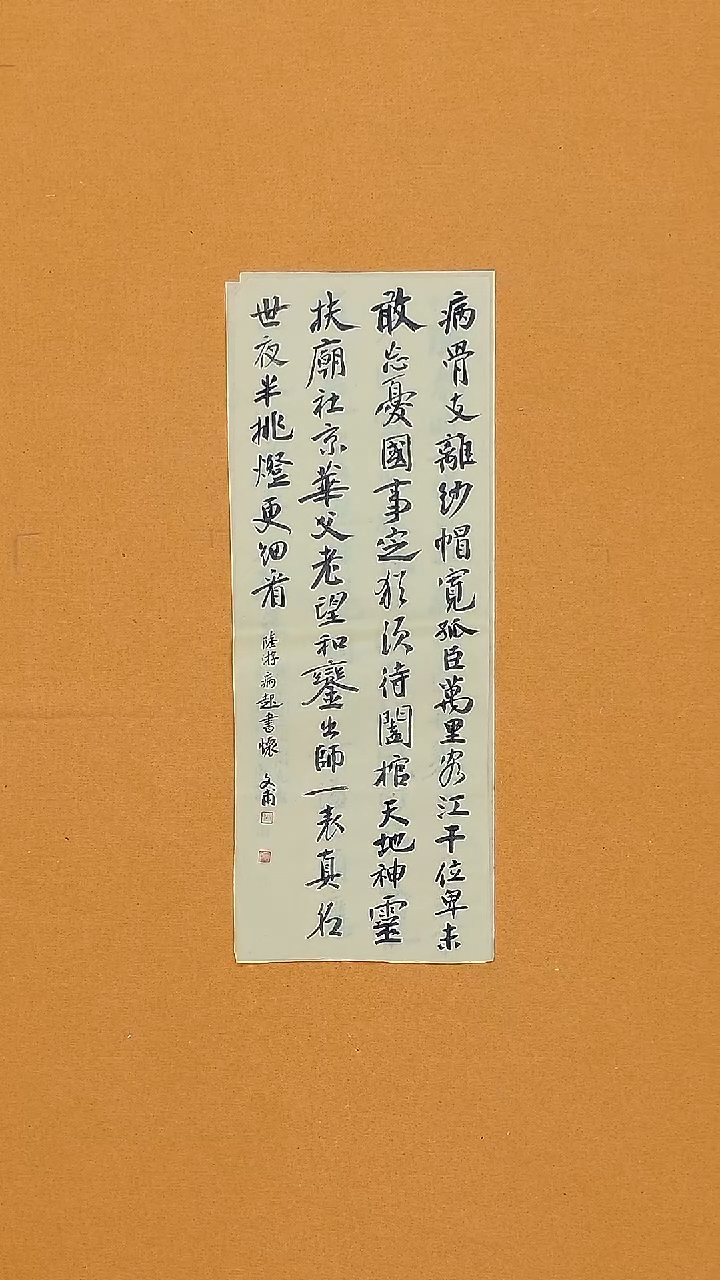 病骨支離紗帽寬孤臣萬里客江干位卑未
敢忘憂國事定猶須待闔棺天地神靈
扶廟社京華父老望和鑾出師一表真名
世夜半挑燈更細看
陸游病起書懷 文甫